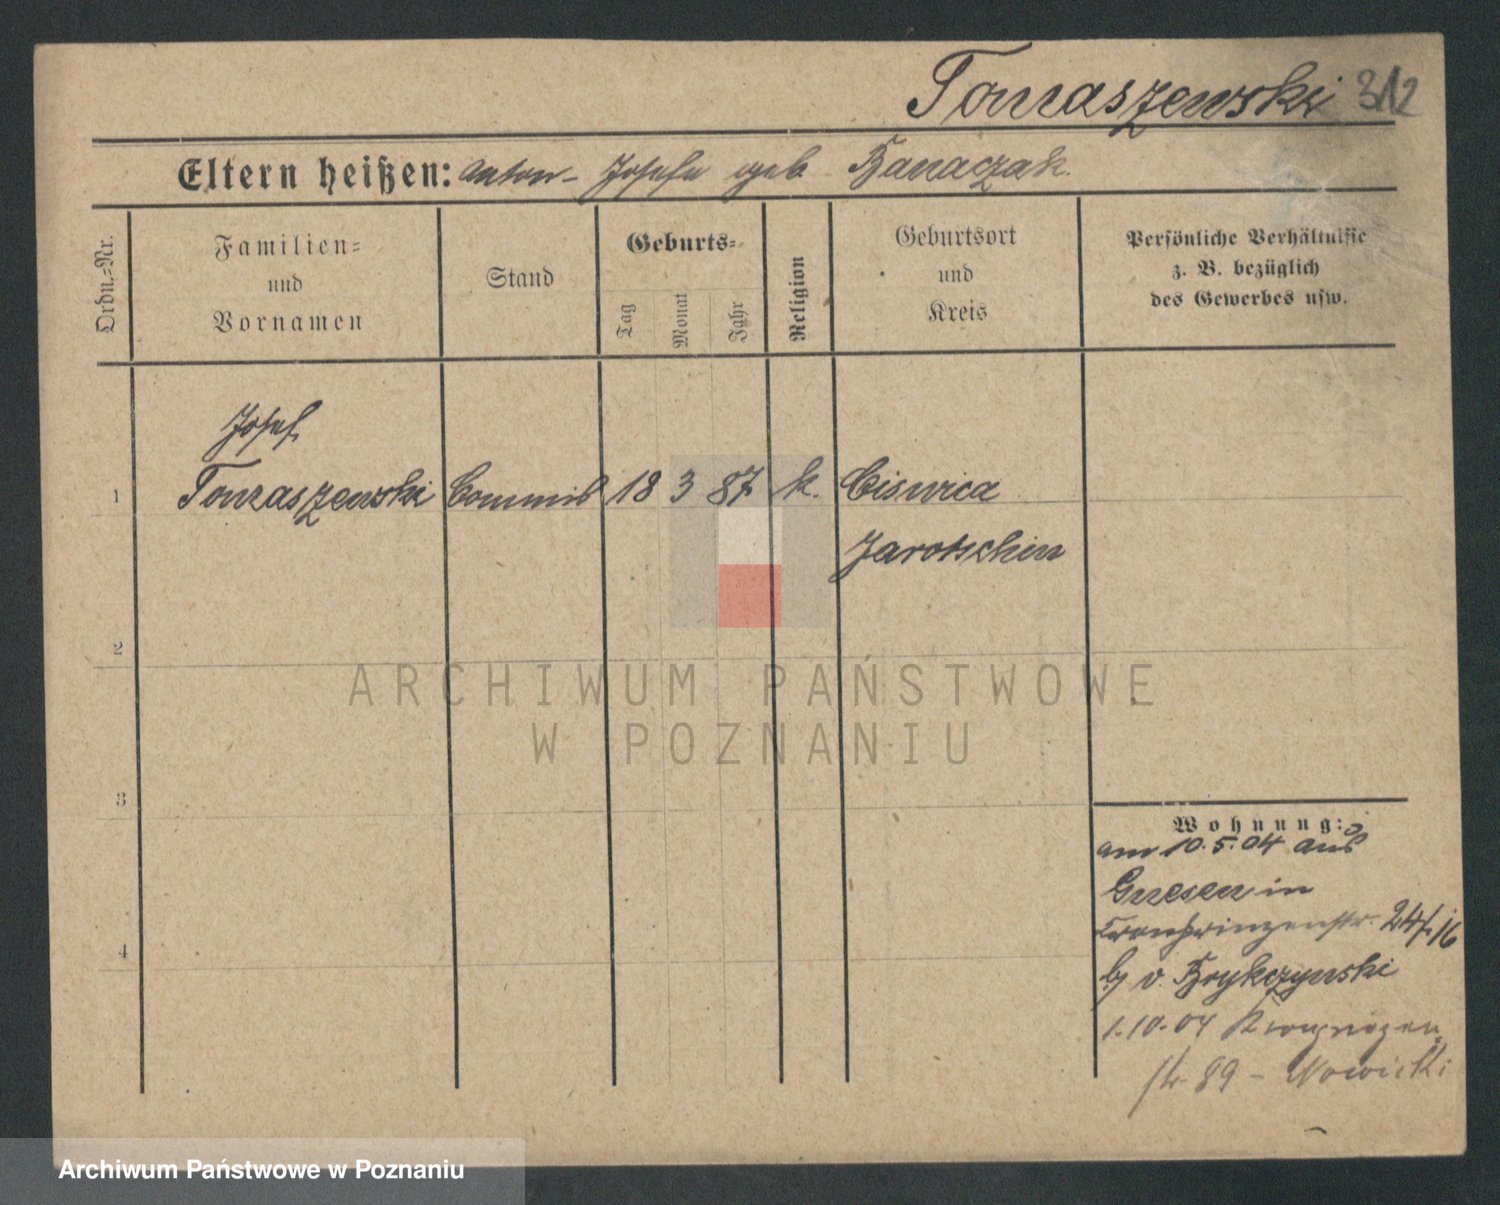 Tomaszewski 312
Eltern heißen: Anton - Josefa geb Banaczak.
Ordn.-Nr.
Familien-
und
Vornamen
Stand
Geburts-
Tag
Monat
Jahr
Religion
Geburtsort
und
Kreis
Persönliche Verhältnisse
z. B. bezüglich
des Gewerbes usw.
Josef
1 Tomaszewski Commis 18 3 87 k. Ciswica
Jarotschin
2
ARCHIWUM PAŃSTWOWE
W POZNANIU
3
Wohnung:
am 10.5.04 aus
Gnesen in
Kronprinzenstr. 24/16
bei v. Brykczynski
1.10.04 Kronprinzen
str. 89 - Nowicki
4
Archiwum Państwowe w Poznaniu